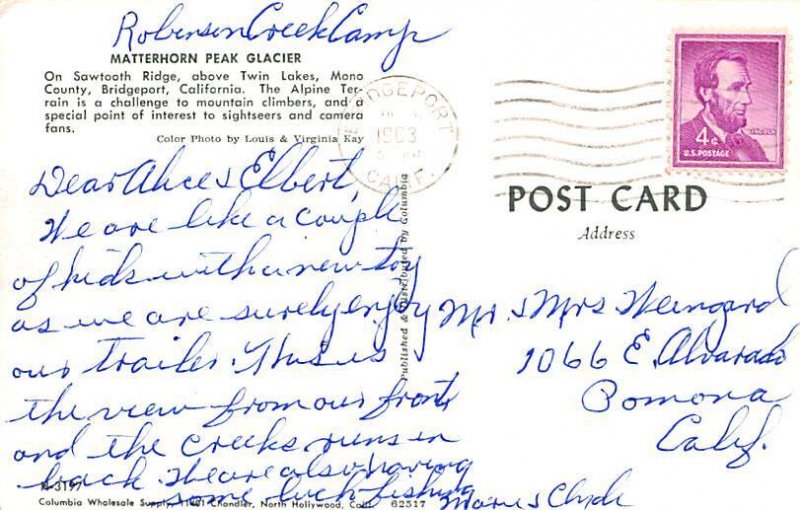 Robinson Creek Camp
MATTERHORN PEAK GLACIER
On Sawtooth Ridge, above Twin Lakes, Mono
County, Bridgeport, California. The Alpine Ter-
rain is a challenge to mountain climbers, and a
special point of interest to sightseers and camera
fans.
Color Photo by Louis & Virginia Kay
Dear Alice & Elbert,
We are like a couple
of kids with a new toy
as we are surely enjoy
our trailer. This is
the view from our front,
and the creeks runs in
back. We are also having
some luck fishing
Marie & Clyde
K-3197
Columbia Wholesale Supply, 11401 Chandler, North Hollywood, Calif. 62517
Published & Distributed by Columbia
BRIDGEPORT
1963
CALIF.
4¢
LINCOLN
U.S. POSTAGE
POST CARD
Address
Mr. & Mrs Weingard
1066 E. Alvarado
Pomona
Calif.